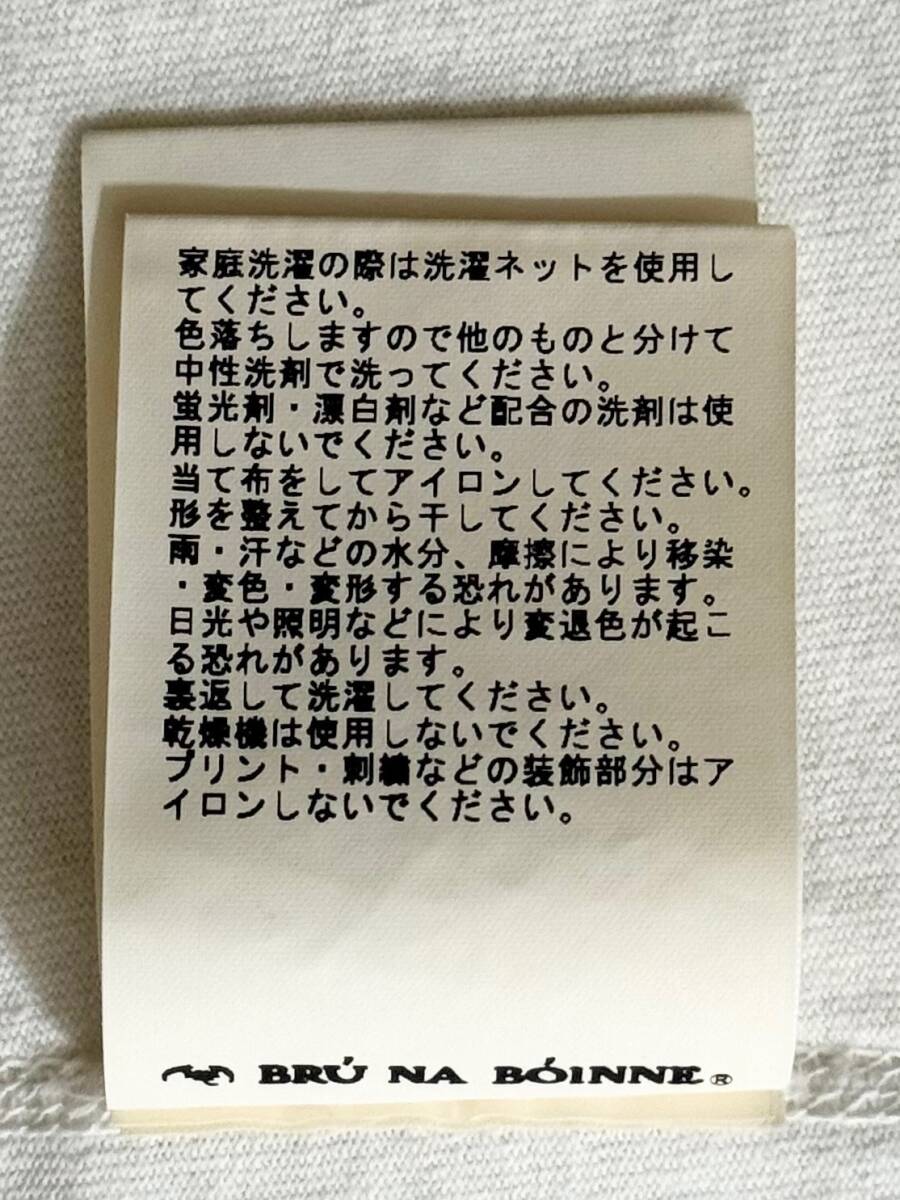 家庭洗濯の際は洗濯ネットを使用し
てください。
色落ちしますので他のものと分けて
中性洗剤で洗ってください。
蛍光剤・漂白剤など配合の洗剤は使
用しないでください。
当て布をしてアイロンしてください。
形を整えてから干してください。
雨・汗などの水分、摩擦により移染
・変色・変形する恐れがあります。
日光や照明などにより変退色が起こ
る恐れがあります。
裏返して洗濯してください。
乾燥機は使用しないでください。
プリント・刺繍などの装飾部分はア
イロンしないでください。
BRÚ NA BÓINNE®